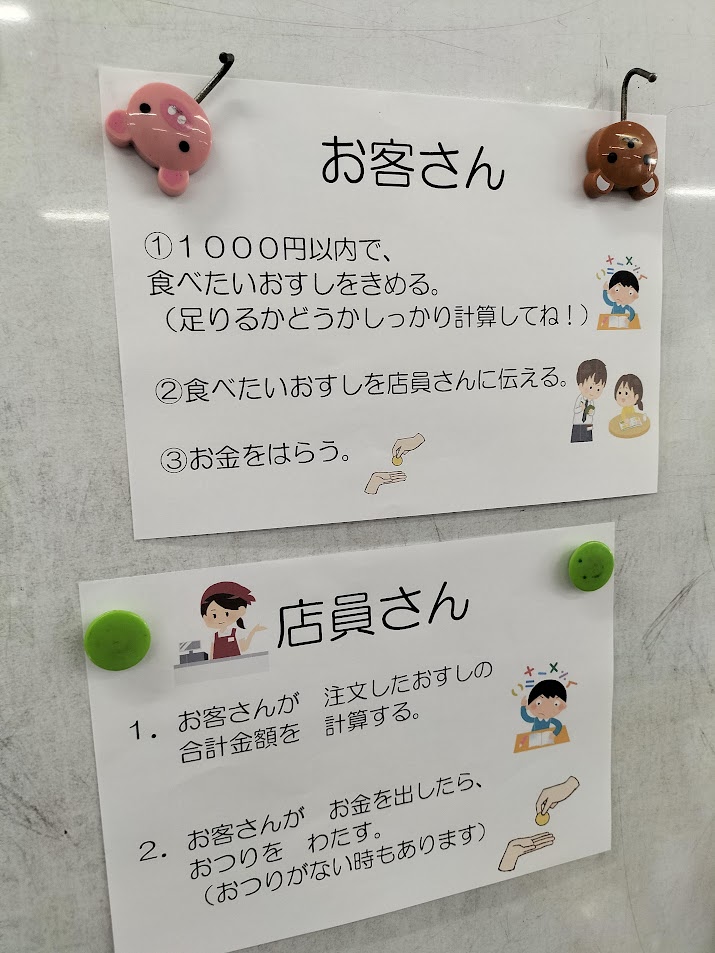 お客さん
①１０００円以内で、
食べたいおすしをきめる。
（足りるかどうかしっかり計算してね！）
②食べたいおすしを店員さんに伝える。
③お金をはらう。
店員さん
１．お客さんが　注文したおすしの
合計金額を　計算する。
２．お客さんが　お金を出したら、
おつりを　わたす。
（おつりがない時もあります）